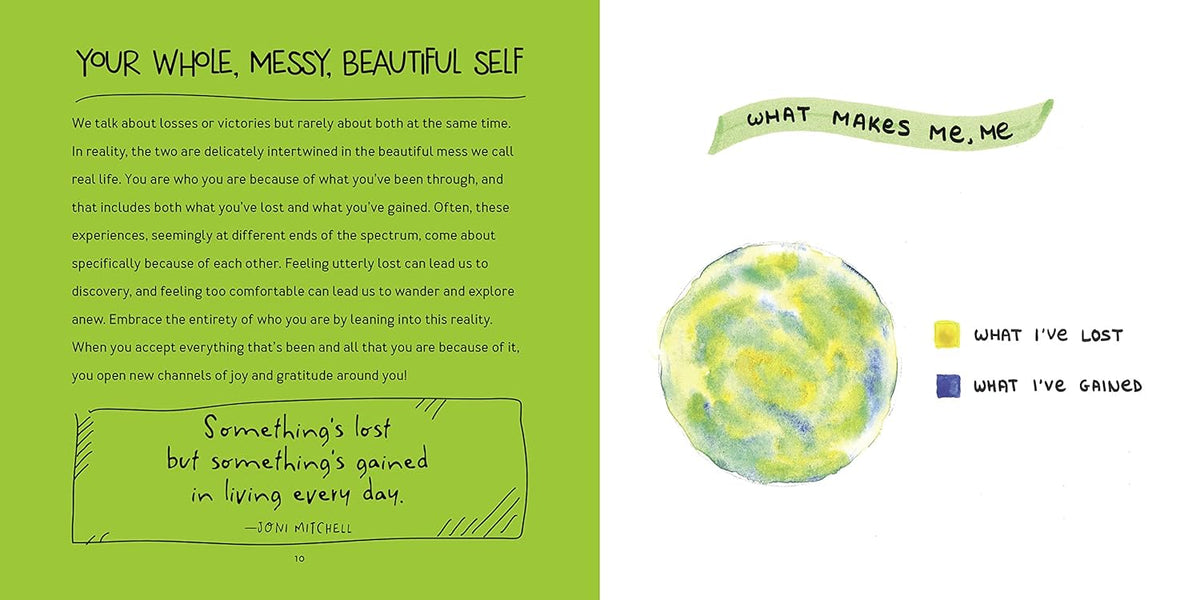 YOUR WHOLE, MESSY, BEAUTIFUL SELF
We talk about losses or victories but rarely about both at the same time.
In reality, the two are delicately intertwined in the beautiful mess we call
real life. You are who you are because of what you've been through, and
that includes both what you've lost and what you've gained. Often, these
experiences, seemingly at different ends of the spectrum, come about
specifically because of each other. Feeling utterly lost can lead us to
discovery, and feeling too comfortable can lead us to wander and explore
anew. Embrace the entirety of who you are by leaning into this reality.
When you accept everything that's been and all that you are because of it,
you open new channels of joy and gratitude around you!
Something's lost
but something's gained
in living every day.
—JONI MITCHELL
10
WHAT MAKES ME, ME
WHAT I'VE LOST
WHAT I'VE GAINED